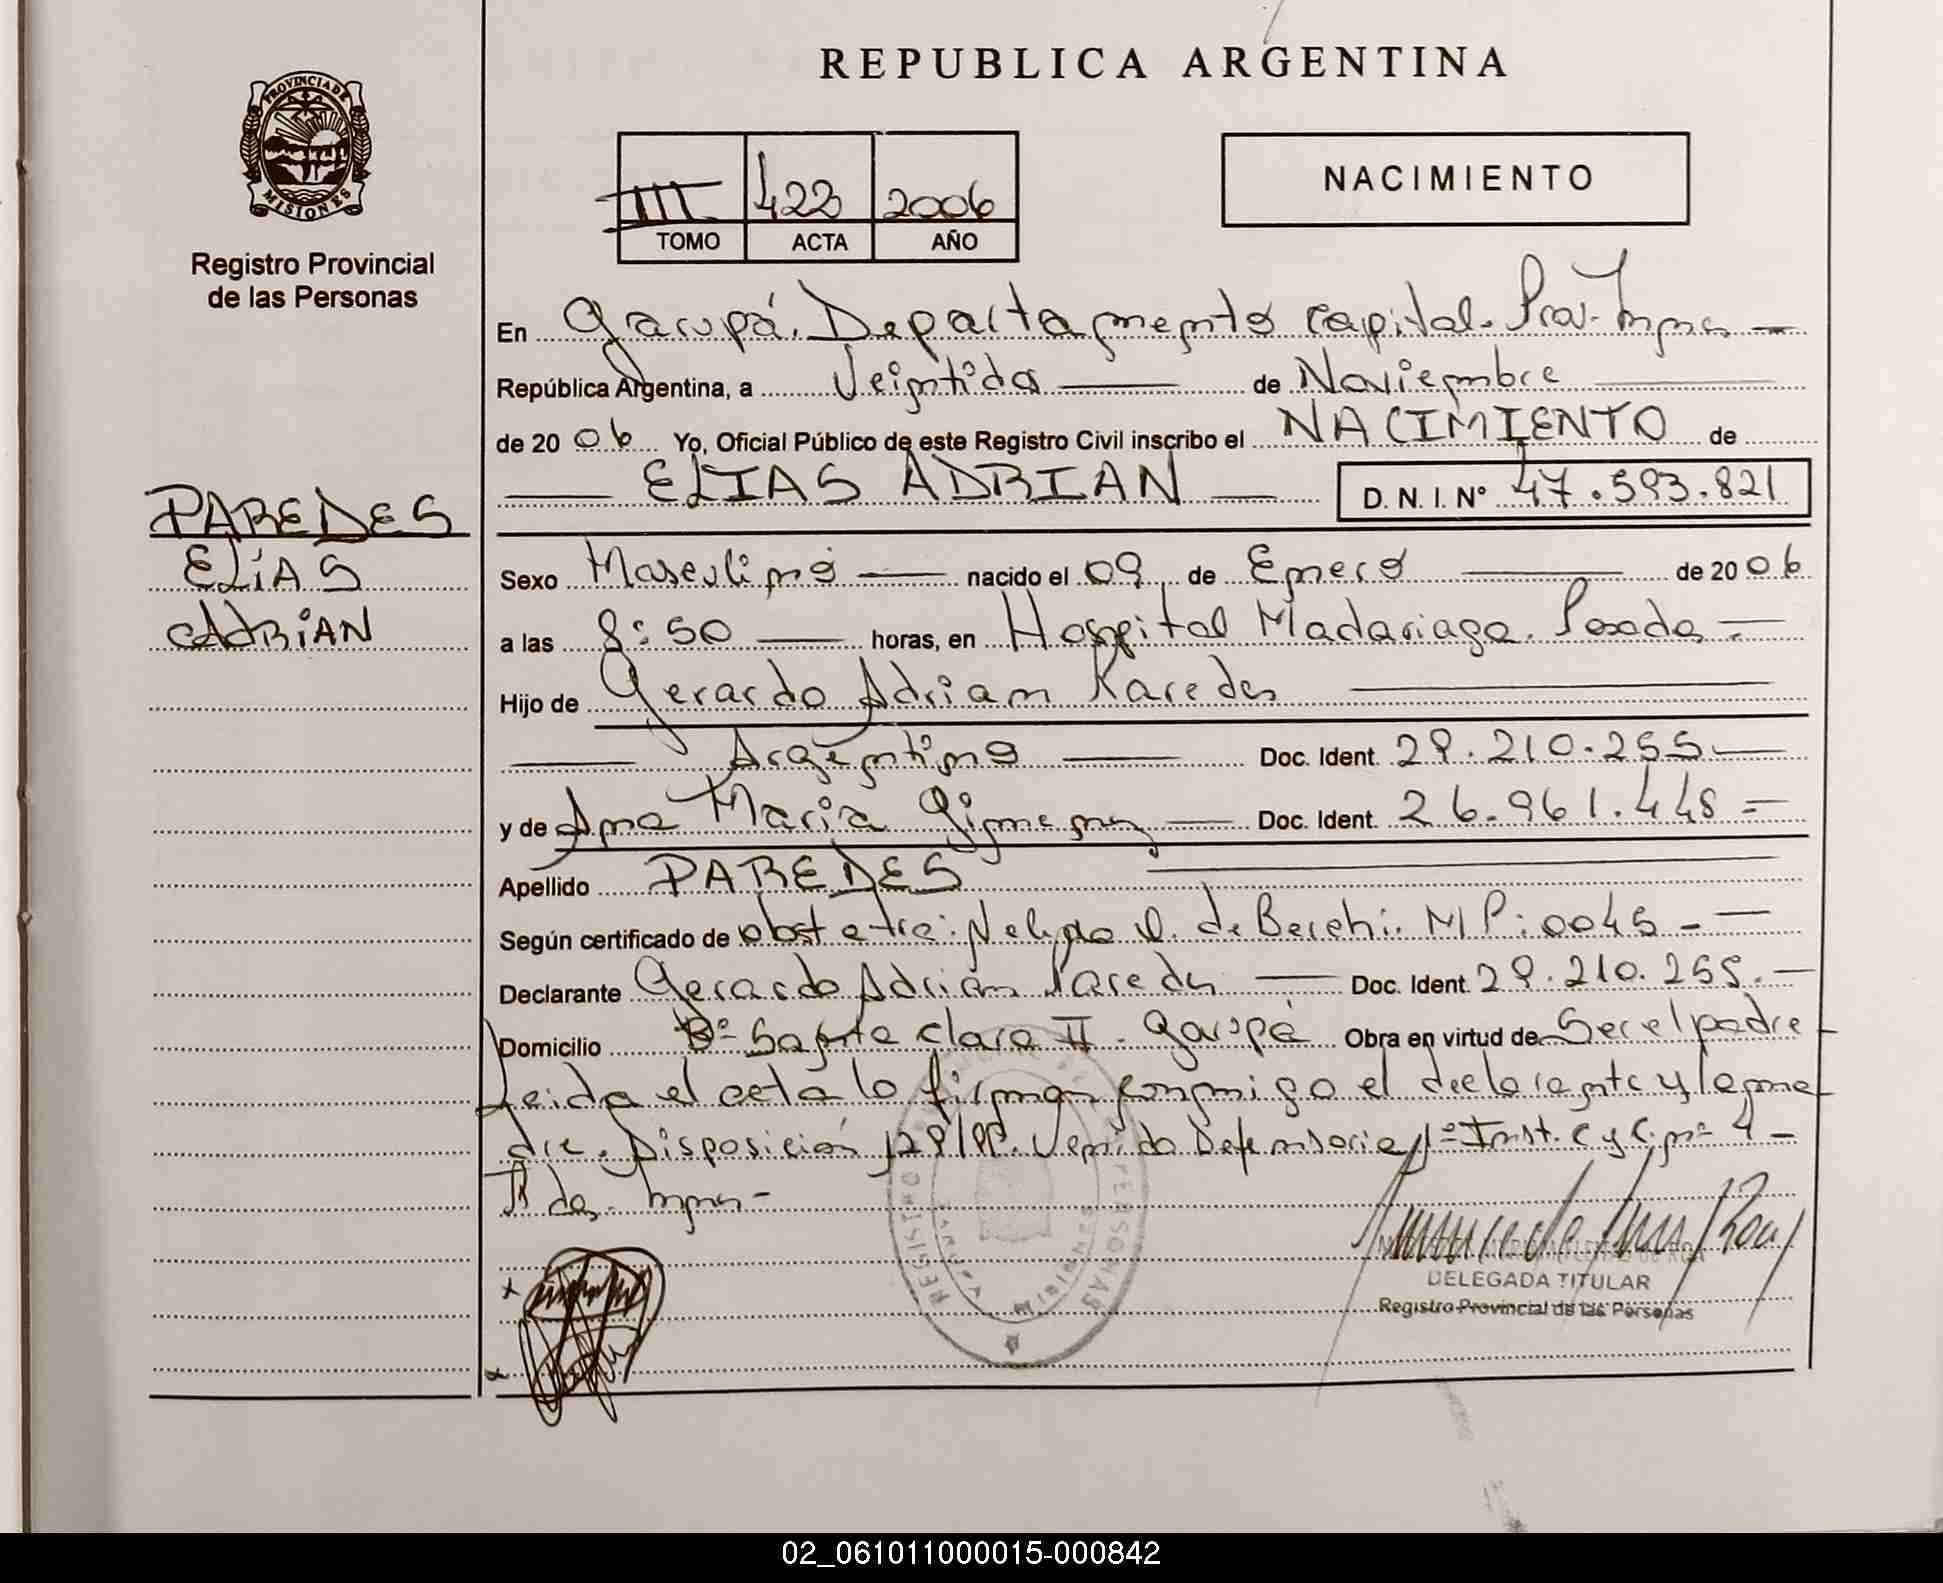 REPUBLICA ARGENTINA
PROVINCIA DE
MISIONES
Registro Provincial
de las Personas
III 422 2006
TOMO ACTA AÑO
NACIMIENTO
En Garupá, Departamento Capital. Prov. Mnes
República Argentina, a Veintidos de Noviembre
de 20 06 Yo, Oficial Público de este Registro Civil inscribo el NACIMIENTO de
ELIAS ADRIAN D. N. I. Nº 47.593.821
PAREDES
ELíAS
ADRiAN
Sexo Masculino nacido el 09 de Enero de 20 06
a las 8:50 horas, en Hospital Madariaga. Posadas
Hijo de Gerardo Adrian Paredes
Argentino Doc. Ident. 29.210.255
y de Ana Maria Gimenez Doc. Ident. 26.961.448
Apellido PAREDES
Según certificado de obstetra: de Berchi. MP: 0045
Declarante Gerardo Adrián Paredes Doc. Ident. 29.210.255.
Domicilio Bº Santa Clara II. Garupá Obra en virtud de Ser el padre
Leida el acta lo firman conmigo el declarante y la ma
dre. Disposición Venido Defensoria 1º Inst. C y C. nº 4
Pdas. Mnes-
REGISTRO PERSONAS
DELEGADA TITULAR
Registro Provincial de las Personas
02_061011000015-000842